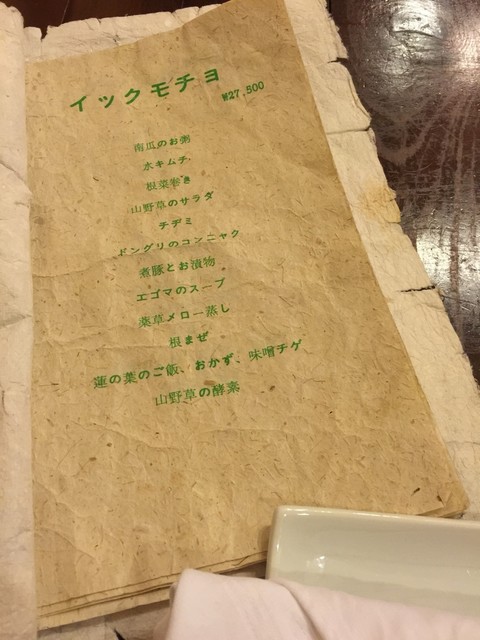 イックモチョ
₩27,500
南瓜のお粥
水キムチ
根菜巻き
山野草のサラダ
チヂミ
ドングリのコンニャク
煮豚とお漬物
エゴマのスープ
薬草メロー蒸し
根まぜ
蓮の葉のご飯、おかず、味噌チゲ
山野草の酵素